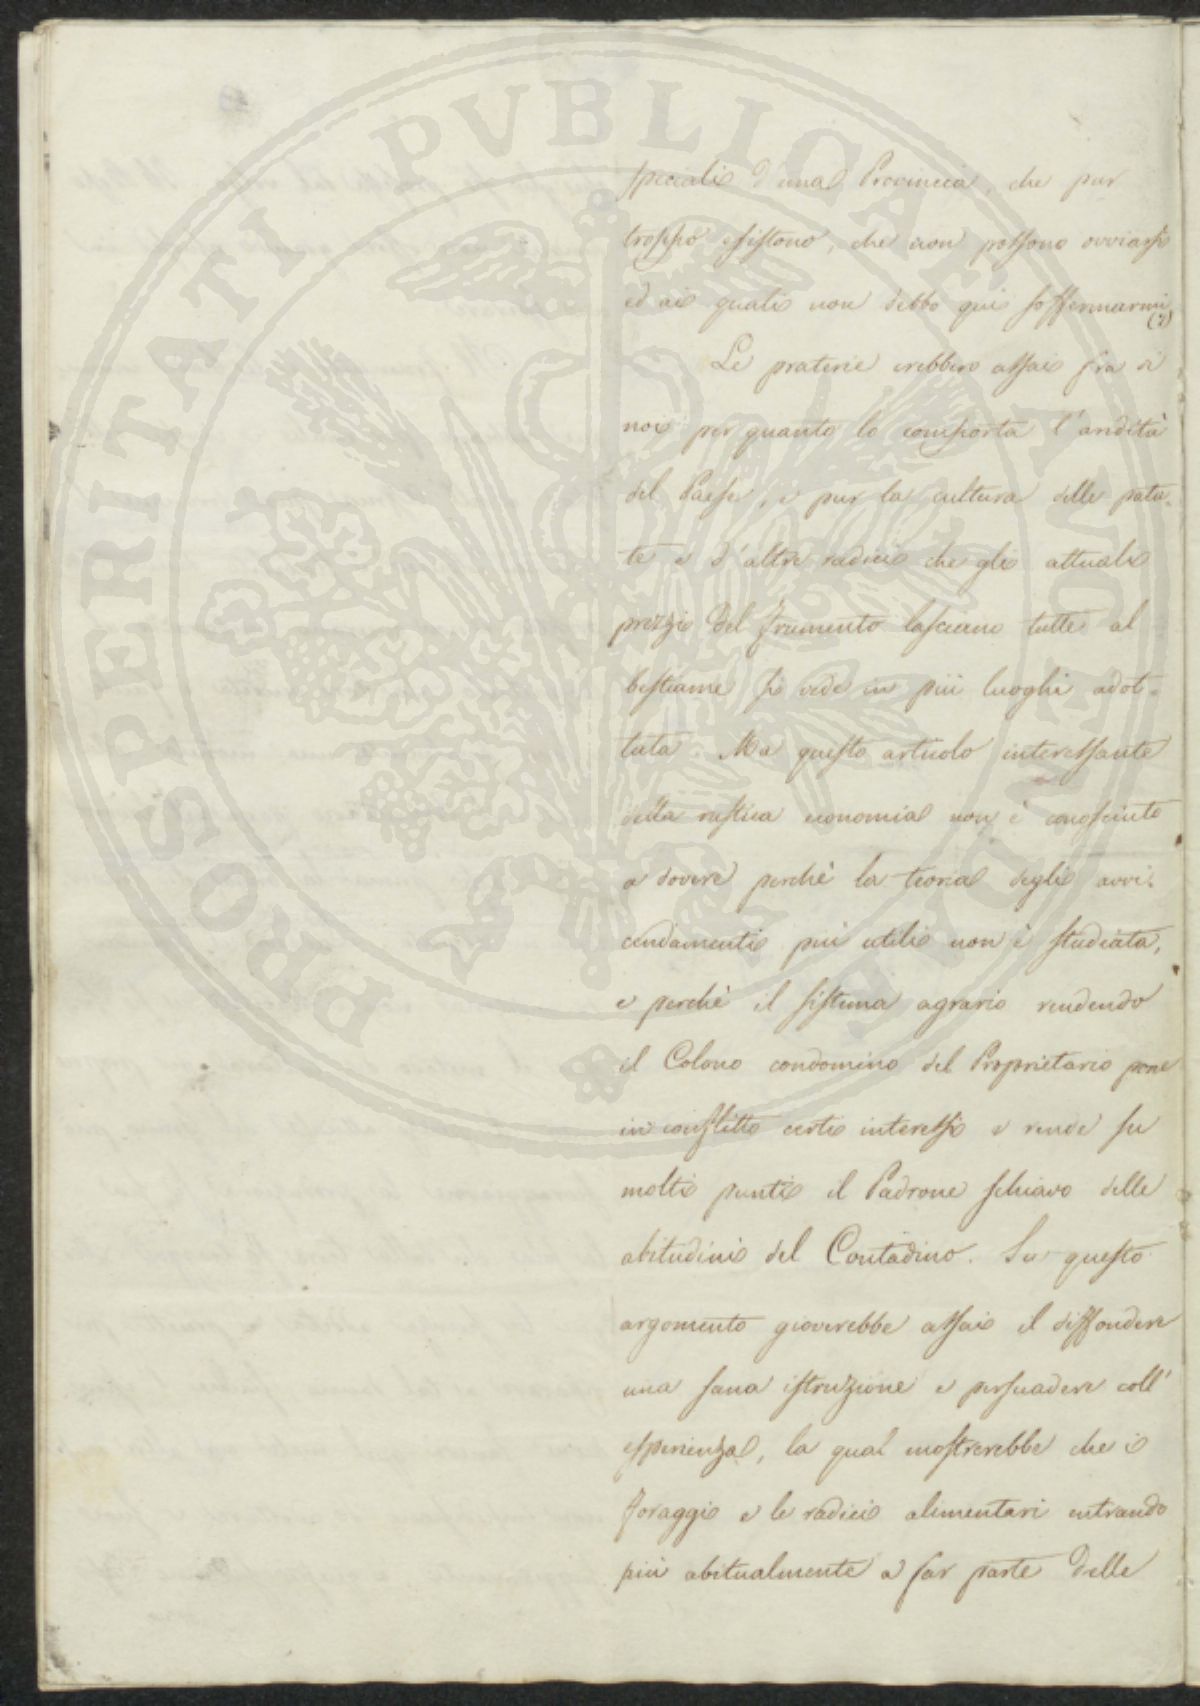 speciali d'una Provincia, che pur
troppo esistono, che non possono ovviarsi
ed ai quali non debbo qui soffermarmi
(7)
Le praterie crebbero assai fra di
noi per quanto lo comporta l'aridità
del Paese, e pur la cultura delle pata-
te e d'altre radici che gli attuali
prezzi del frumento lasciano tutte al
bestiame si vede in più luoghi adot-
tata. Ma questo articolo interessante
della rustica economia non è conosciuto
a dovere perchè la teoria degli avvi-
cendamenti più utili non è studiata,
e perchè il sistema agrario rendendo
il Colono condomino del Proprietario pone
in conflitto certi interessi e rende su
molti punti il Padrone schiavo delle
abitudini del Contadino. Su questo
argomento gioverebbe assai il diffondere
una sana istruzione e persuadere coll'
esperienza, la qual mostrerebbe che i
foraggi e le radici alimentari entrando
più abitualmente a far parte delle
PROSPERITATI PVBLICAE AVGENDAE